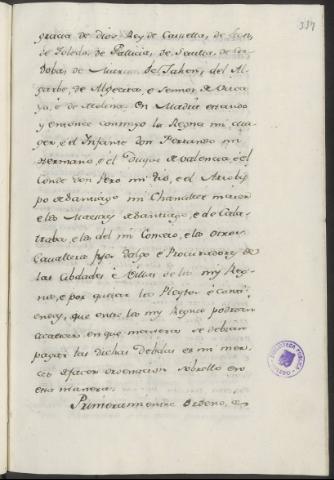 337
gracia de Dios Rey de Castiella, de Leon,
de Toledo, de Gallicia, de Sevilla, de Cor-
doba, de Murcia, de Jahen, del Al-
garbe, de Algecira, e Sennor de Vizca-
ya, é de Molina. En Madrit estando
y entonce conmigo la Regna mi mu-
ger, é el Infante Don Ferrando mi
Hermano, é el Duque de Valencia, é el
Conde don Pero mi tio, é el Arzobis-
po de Santiago mi Chanceller maior
e los Maestres de Santiago, e de Cala-
traba, e los del mi Consejo, e los otros
Cavalleros fijos dalgo é Procuradores de
las Cibdades é Villas de los mis Reg-
nos, e por quitar los Pleytos é contien-
das, que entre los mis Regnos podrian
acaescer en que maneras se debian
pagar las dichas Debdas es mi mer-
ced de facer ordenacion sobrello en
esta manera.
Primeramientre Ordeno, e